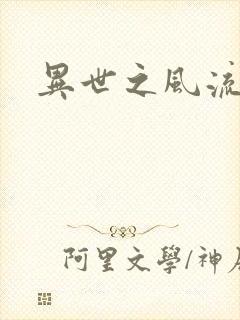 異世之風流
阿里文學/神